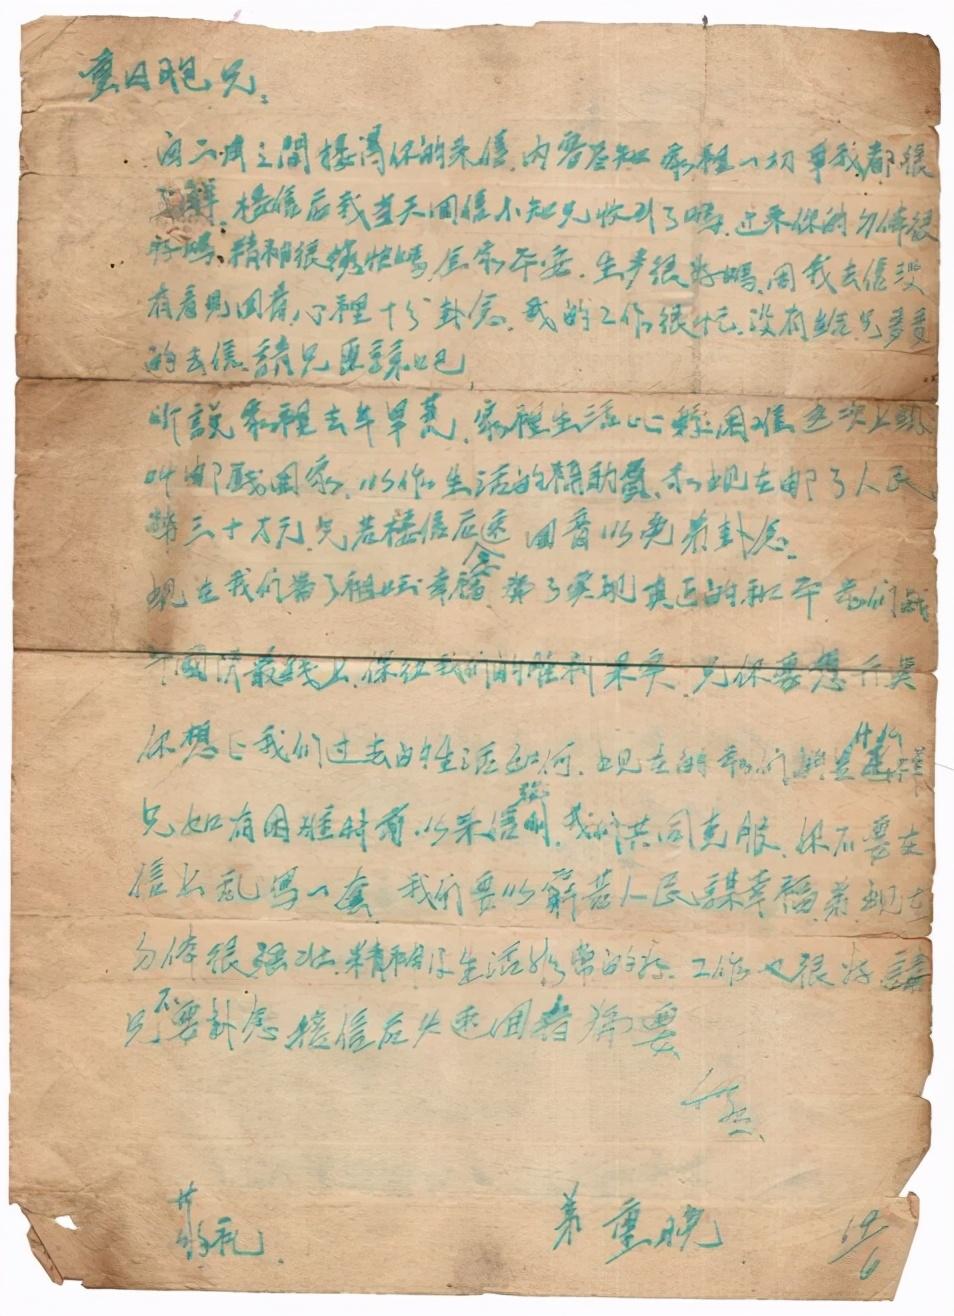 重日包兄：
这二次之間接得你的来信，内容尽知，家裡一切事我都很
了解，接信后我当天回信，不知兄收到了嗎，近来你的身体很
好嗎，精神很愉快嗎，全家平安，生产很好嗎，因我去信没
有看見回音，心裡十分卦念，我的工作很忙，没有給兄多多
的去信，請兄原諒吧
听説家裡去年旱荒，家裡生活比較困难，这次上級
叫邮錢回家，以作生活的補助費，弟現在邮了人民
幣三十万元，兄若接信后速回音以免弟卦念。
現在我们為了祖国安全幸福，為了实現真正的和平，我们战
斗國防最线上，保征我们的胜利果实，兄你要想一想
你想上我们过去的生活如何，現在的我们 是什么
兄如有困难時 可以来信説明，我们共同克服，但不要在
信上乱寫一套，我们要以解苦人民謀幸福，弟現在
身体很强壮，精神及生活非常的好，工作也很好，請
兄不要卦念，接信后火速回音为要
此致
敬礼
弟 重晚
14/6